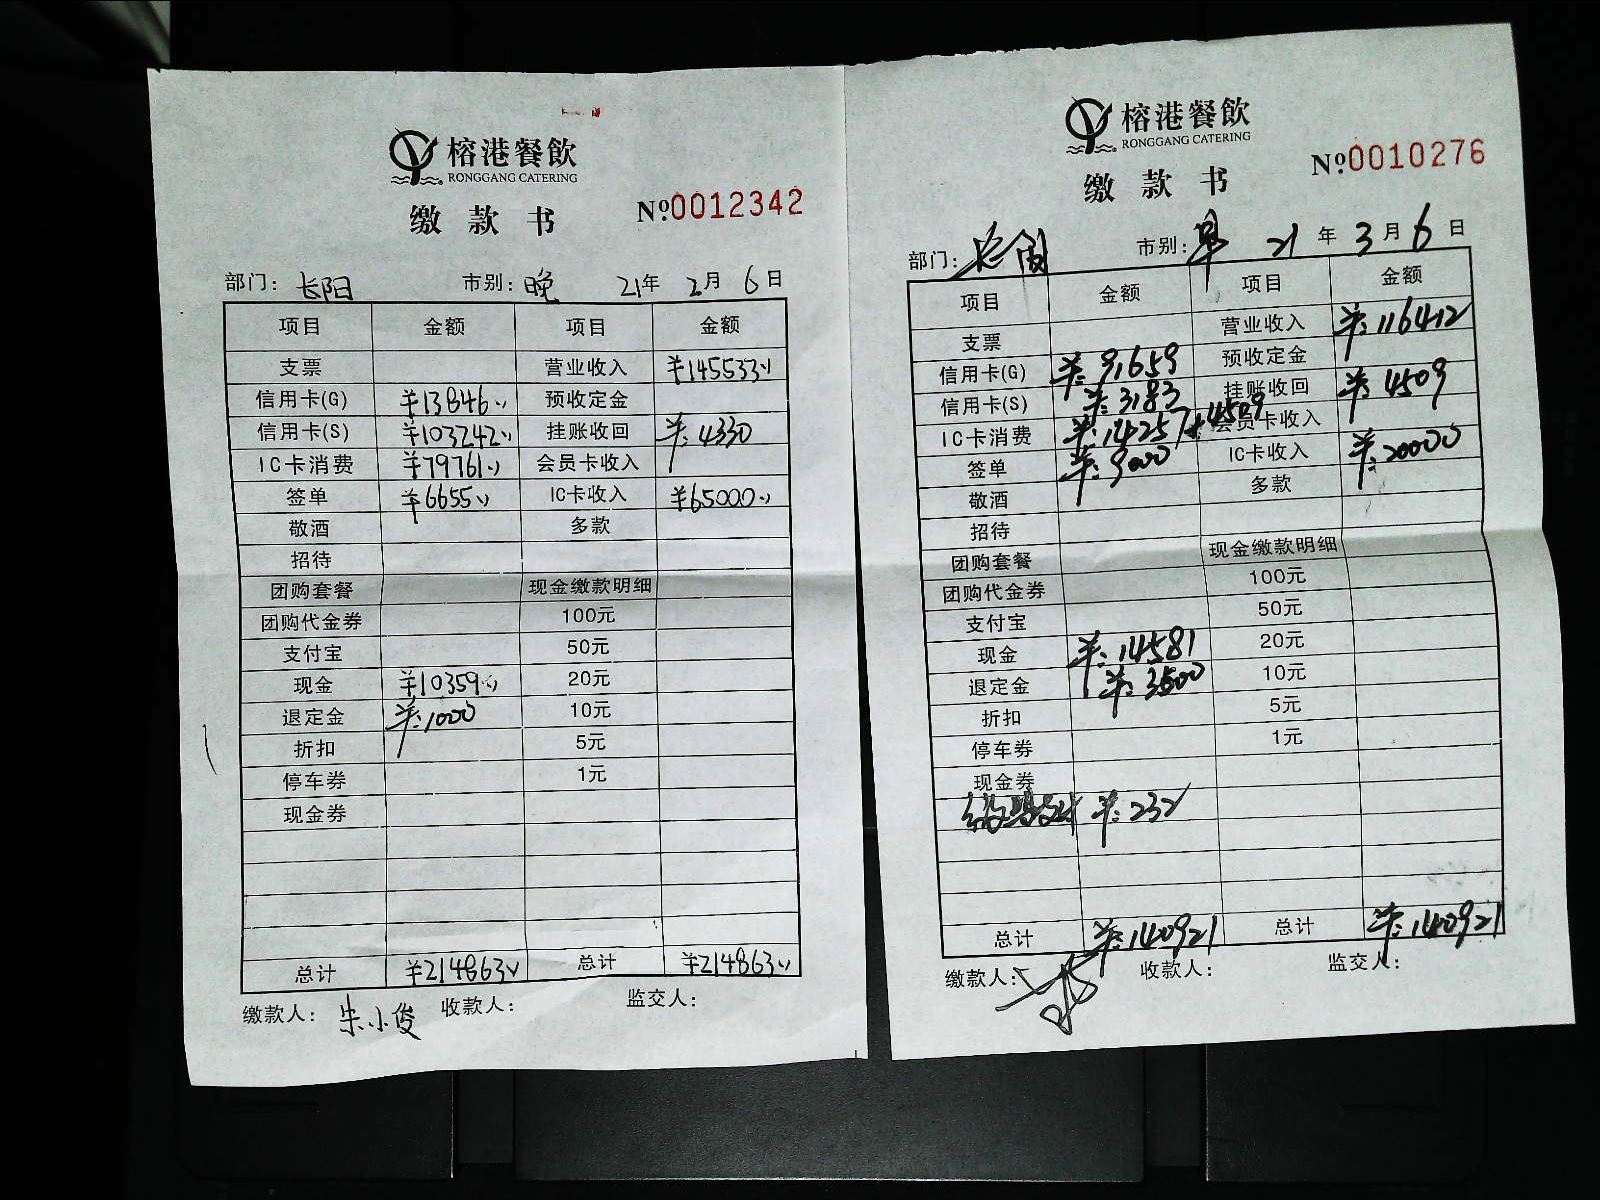 榕港餐飲
RONGGANG CATERING
缴款书
№0012342
部门：长阳 市别：晚 21年2月6日
项目 金额 项目 金额
支票 营业收入 ¥145533
信用卡(G) ¥13846 预收定金
信用卡(S) ¥103242 挂账收回 ¥:4330
IC卡消费 ¥79761 会员卡收入
签单 ¥6655 IC卡收入 ¥65000
敬酒 多款
招待
团购套餐 现金缴款明细
团购代金券 100元
支付宝 50元
现金 ¥10359 20元
退定金 ¥:1000 10元
折扣 5元
停车券 1元
现金券
总计 ¥214863 总计 ¥214863
缴款人：朱小俊 收款人： 监交人：
榕港餐飲
RONGGANG CATERING
缴款书
№0010276
部门： 市别：早 21年3月6日
项目 金额 项目 金额
支票 营业收入 ¥:116412
信用卡(G) ¥:91659 预收定金
信用卡(S) ¥:3183 挂账收回 ¥:4509
IC卡消费 ¥:14257+4509 会员卡收入
签单 ¥:9000 IC卡收入 ¥:20000
敬酒 多款
招待
团购套餐 现金缴款明细
团购代金券 100元
支付宝 50元
现金 ¥:14581 20元
退定金 ¥:3500 10元
折扣 5元
停车券 1元
现金券
¥:232
总计 ¥:140921 总计 ¥:140921
缴款人： 收款人： 监交人：